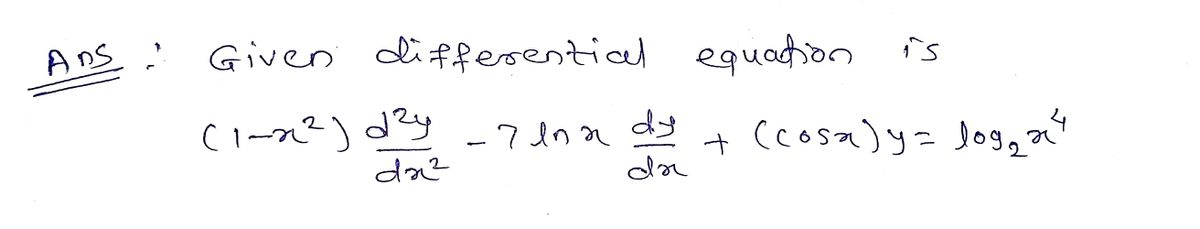 Ans : Given differential equation is
(1-x²) d²y/dx² - 7 ln x dy/dx + (cosx)y = log₂x⁴